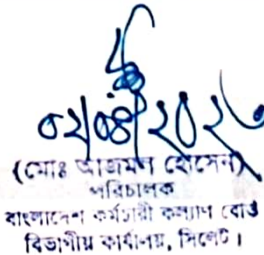 ০২/০৪/২০২৬
(মোঃ আজমল হোসেন)
পরিচালক
বাংলাদেশ কর্মচারী কল্যাণ বোর্ড
বিভাগীয় কার্যালয়, সিলেট।